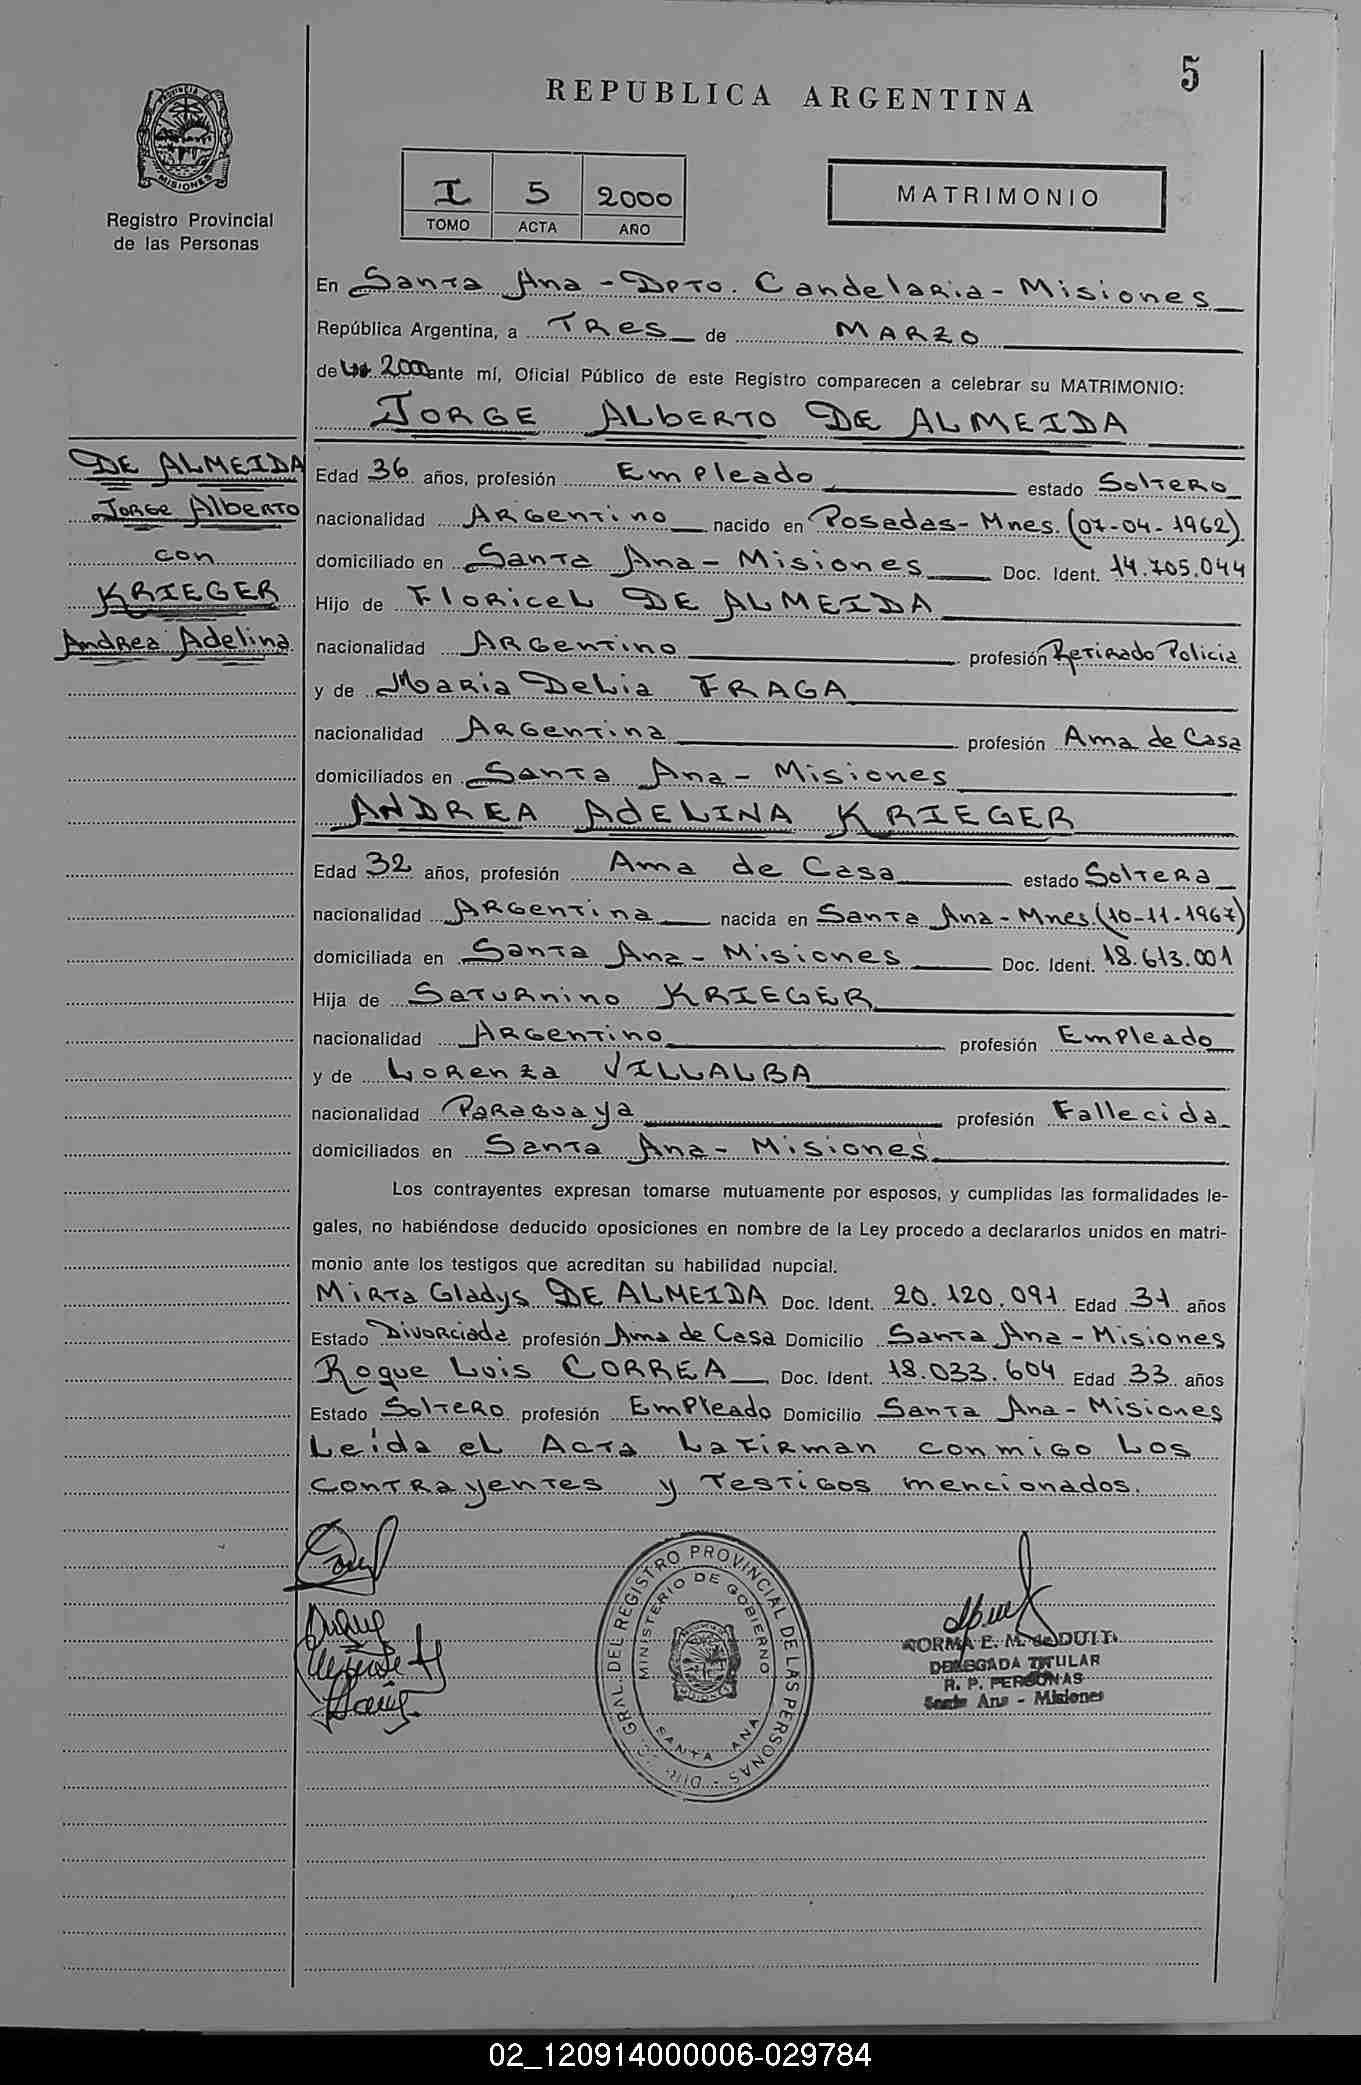 5
REPUBLICA ARGENTINA
PROVINCIA DE
MISIONES
Registro Provincial
de las Personas
I 5 2000
TOMO ACTA AÑO
MATRIMONIO
En Santa Ana - Dpto. Candelaria - Misiones
República Argentina, a Tres de MARZO
de 2000 ante mí, Oficial Público de este Registro comparecen a celebrar su MATRIMONIO:
JORGE ALBERTO DE ALMEIDA
DE ALMEIDA
Jorge Alberto
con
KRIEGER
Andrea Adelina
Edad 36 años, profesión Empleado estado Soltero
nacionalidad Argentino nacido en Posadas - Mnes. (07-04-1962)
domiciliado en Santa Ana - Misiones Doc. Ident. 14.705.044
Hijo de Floricel DE ALMEIDA
nacionalidad Argentino profesión Retirado Policia
y de Maria Delia FRAGA
nacionalidad Argentina profesión Ama de Casa
domiciliados en Santa Ana - Misiones
ANDREA ADELINA KRIEGER
Edad 32 años, profesión Ama de Casa estado Soltera
nacionalidad Argentina nacida en Santa Ana - Mnes. (10-11-1967)
domiciliada en Santa Ana - Misiones Doc. Ident. 18.613.001
Hija de Saturnino KRIEGER
nacionalidad Argentino profesión Empleado
y de Lorenza VILLALBA
nacionalidad Paraguaya profesión Fallecida
domiciliados en Santa Ana - Misiones
Los contrayentes expresan tomarse mutuamente por esposos, y cumplidas las formalidades le-
gales, no habiéndose deducido oposiciones en nombre de la Ley procedo a declararlos unidos en matri-
monio ante los testigos que acreditan su habilidad nupcial.
Mirta Gladys DE ALMEIDA Doc. Ident. 20.120.091 Edad 31 años
Estado Divorciada profesión Ama de Casa Domicilio Santa Ana - Misiones
Roque Luis CORREA Doc. Ident. 18.033.604 Edad 33 años
Estado Soltero profesión Empleado Domicilio Santa Ana - Misiones
Leída el Acta La Firman conmigo Los
contrayentes y Testigos mencionados.
DIR. GRAL. DEL REGISTRO PROVINCIAL DE LAS PERSONAS
MINISTERIO DE GOBIERNO
SANTA ANA
NORMA E. M. de
DELEGADA TITULAR
R. P. PERSONAS
Santa Ana - Misiones
02_120914000006-029784